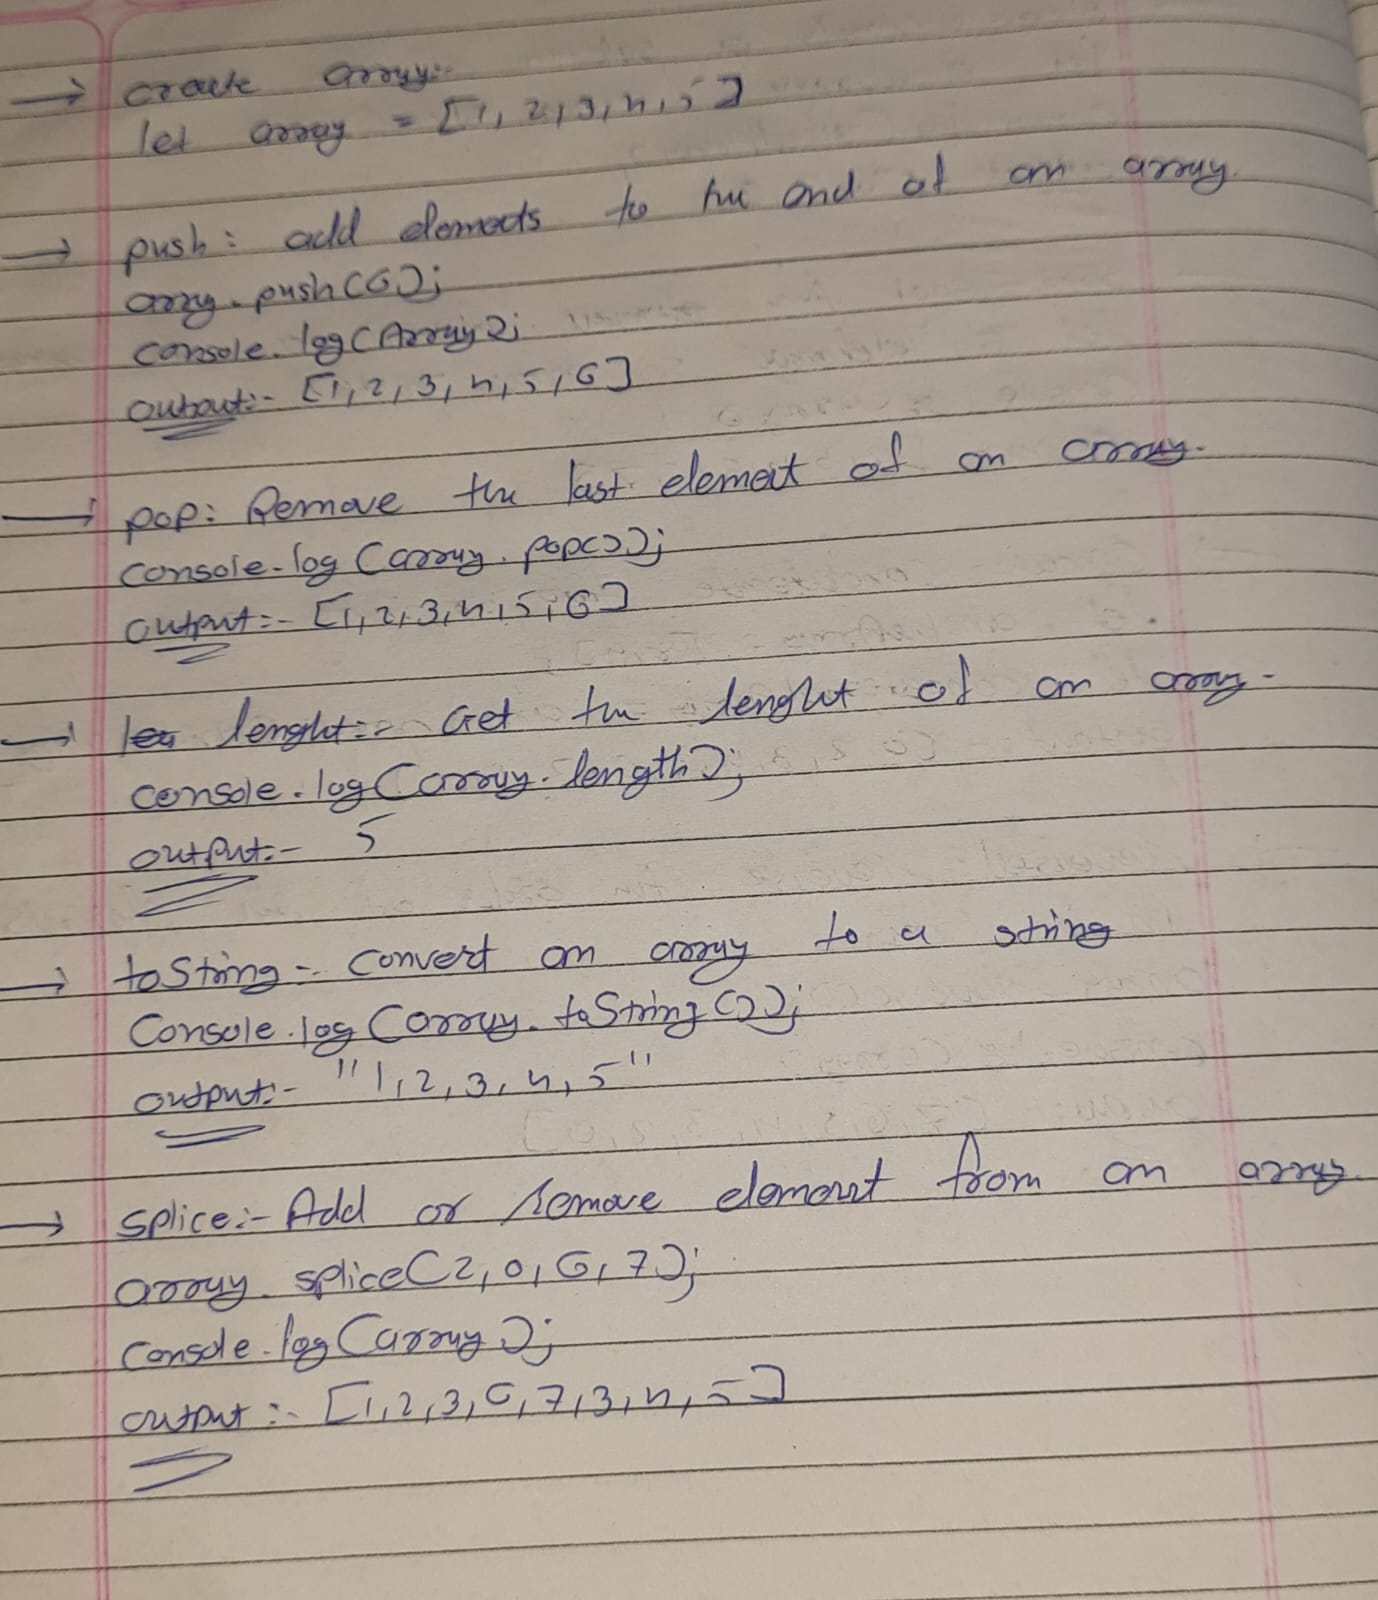 → create array:-
let array = [1, 2, 3, 4, 5]
→ push: add elements to the end of an array.
array.push(6);
console.log(Array);
output:- [1, 2, 3, 4, 5, 6]
→ pop: Remove the last element of an array.
console.log(array.pop());
output:- [1, 2, 3, 4, 5, 6]
→ lenght:- Get the lenght of an array-
console.log(array.length);
output:- 5
→ toString:- Convert an array to a string
Console.log(array.toString());
output:- "1, 2, 3, 4, 5"
→ splice:- Add or remove element from an array.
array.splice(2, 0, 6, 7);
console.log(array);
output:- [1, 2, 3, 6, 7, 3, 4, 5]